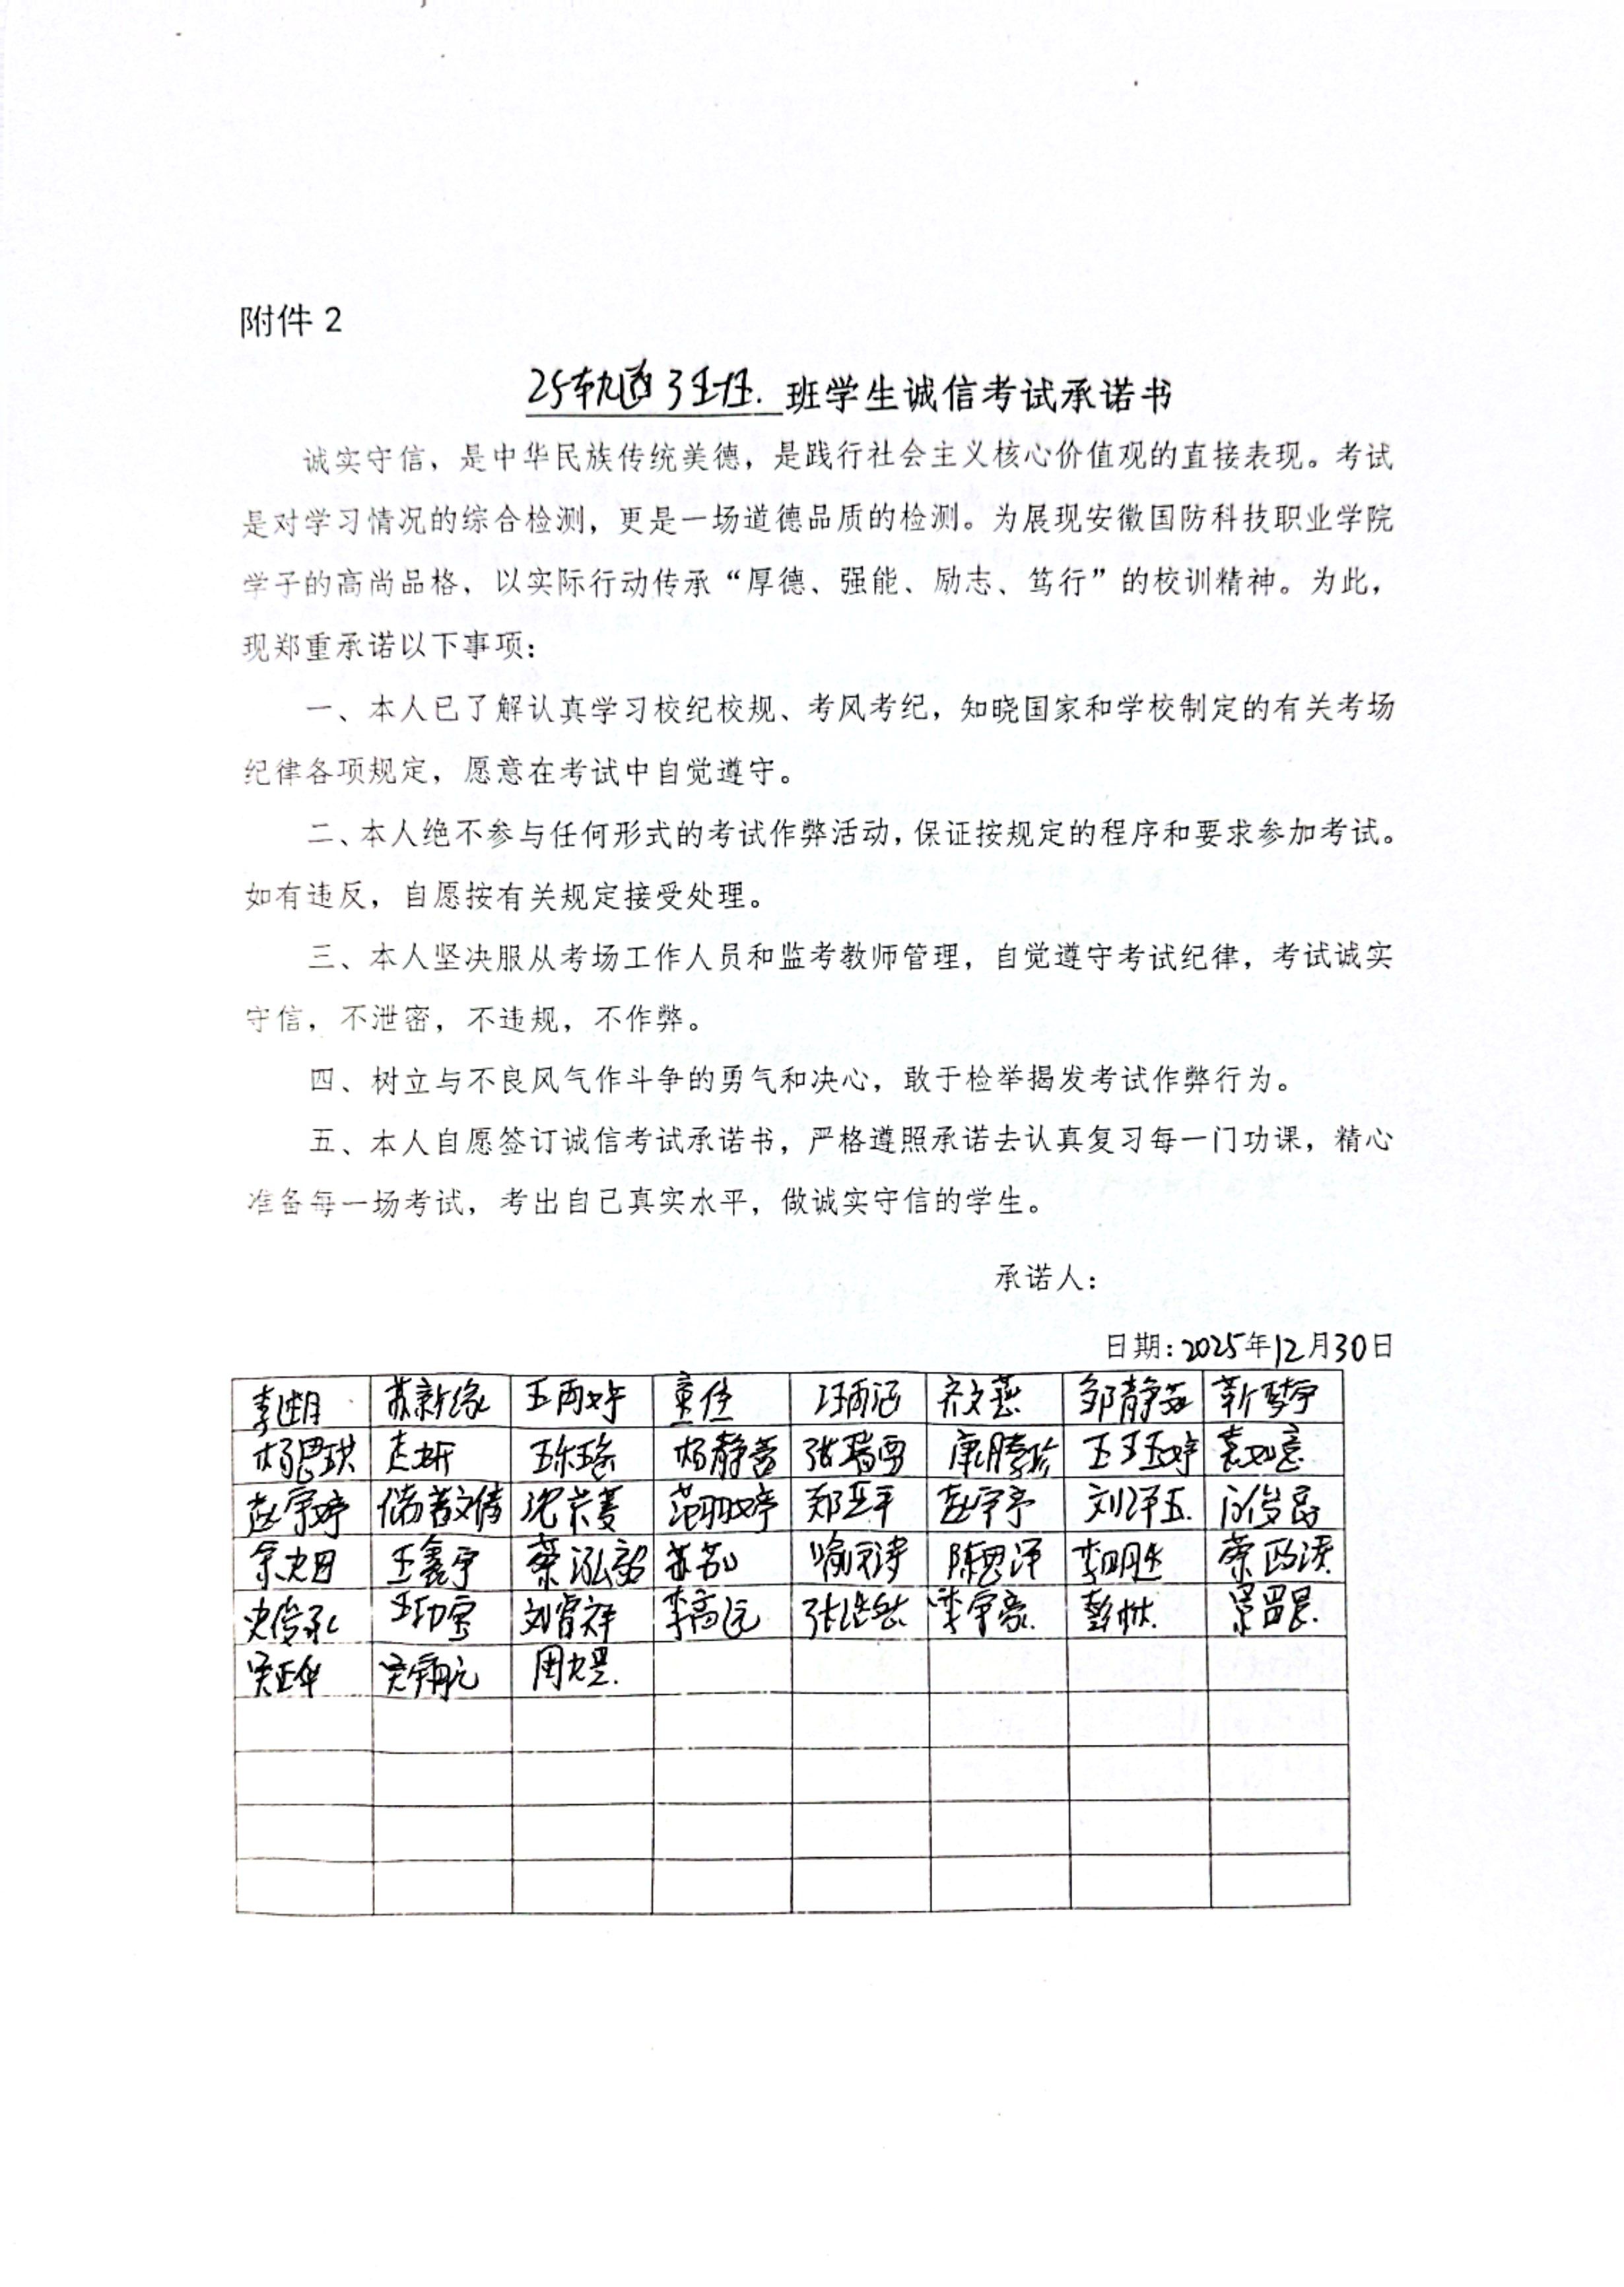 附件 2
25轨道3班 班学生诚信考试承诺书
诚实守信、是中华民族传统美德，是践行社会主义核心价值观的直接表现。考试
是对学习情况的综合检测，更是一场道德品质的检测。为展现安徽国防科技职业学院
学子的高尚品格，以实际行动传承“厚德、强能、励志、笃行”的校训精神。为此，
现郑重承诺以下事项：
一、本人已了解认真学习校纪校规、考风考纪，知晓国家和学校制定的有关考场
纪律各项规定，愿意在考试中自觉遵守。
二、本人绝不参与任何形式的考试作弊活动，保证按规定的程序和要求参加考试。
如有违反，自愿按有关规定接受处理。
三、本人坚决服从考场工作人员和监考教师管理，自觉遵守考试纪律，考试诚实
守信，不泄密，不违规，不作弊。
四、树立与不良风气作斗争的勇气和决心，敢于检举揭发考试作弊行为。
五、本人自愿签订诚信考试承诺书，严格遵照承诺去认真复习每一门功课，精心
准备每一场考试，考出自己真实水平，做诚实守信的学生。
承诺人：
日期：2025年12月30日
苏新缘 王雨婷 童佳 汪雨涵 邹静 靳梦宇
杨思琪 杨静蕾 张瑞雪 康滕珍 王玉婷 袁如意
赵宇婷 储著文倩 沈荣菱 范羽婷 郑正平 赵宇亭
王鑫宇 蔡泓毅 喻文涛 陈思洋 李明胜
史俊永 王印雪 刘肖祥 李高远 李宇豪 彭树
吴正华 吴雨航